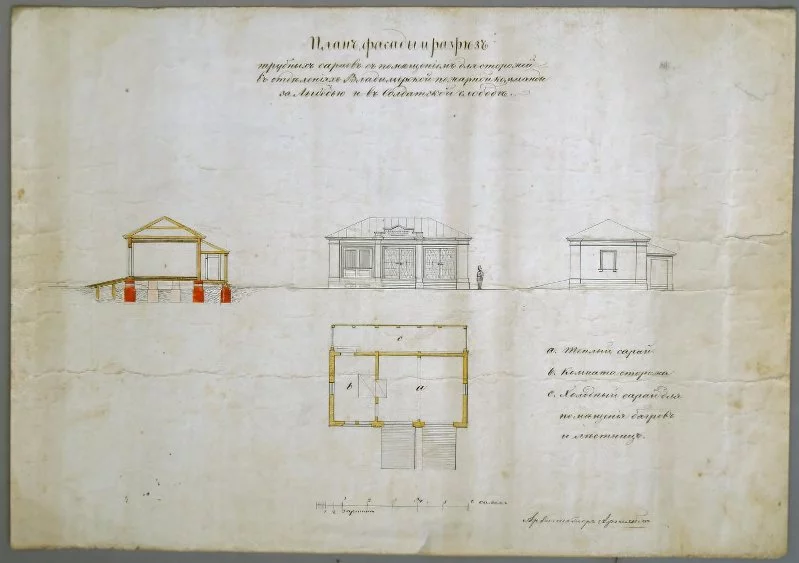 Планъ, фасады и разрѣзъ
трубныхъ сараевъ съ помѣщеніемъ для сторожей
въ отдѣленіяхъ Владимірской пожарной комманды
за Лыбедью и въ Солдатской слободѣ.
c
b
a
a. Теплый сарай
b. Комната сторожа
c. Холодный сарай для
помѣщенія багровъ
и лѣстницъ.
саженъ
Аршинъ
Архитекторъ